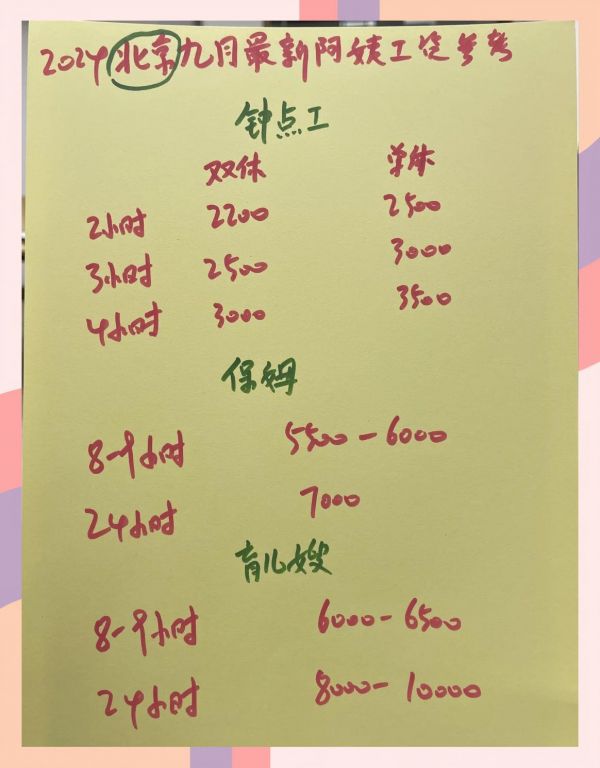 2024北京九月最新阿姨工资参考
钟点工
双休 单休
2小时 2200 2500
3小时 2500 3000
4小时 3000 3500
保姆
8-9小时 5500-6000
24小时 7000
育儿嫂
8-9小时 6000-6500
24小时 8000-10000